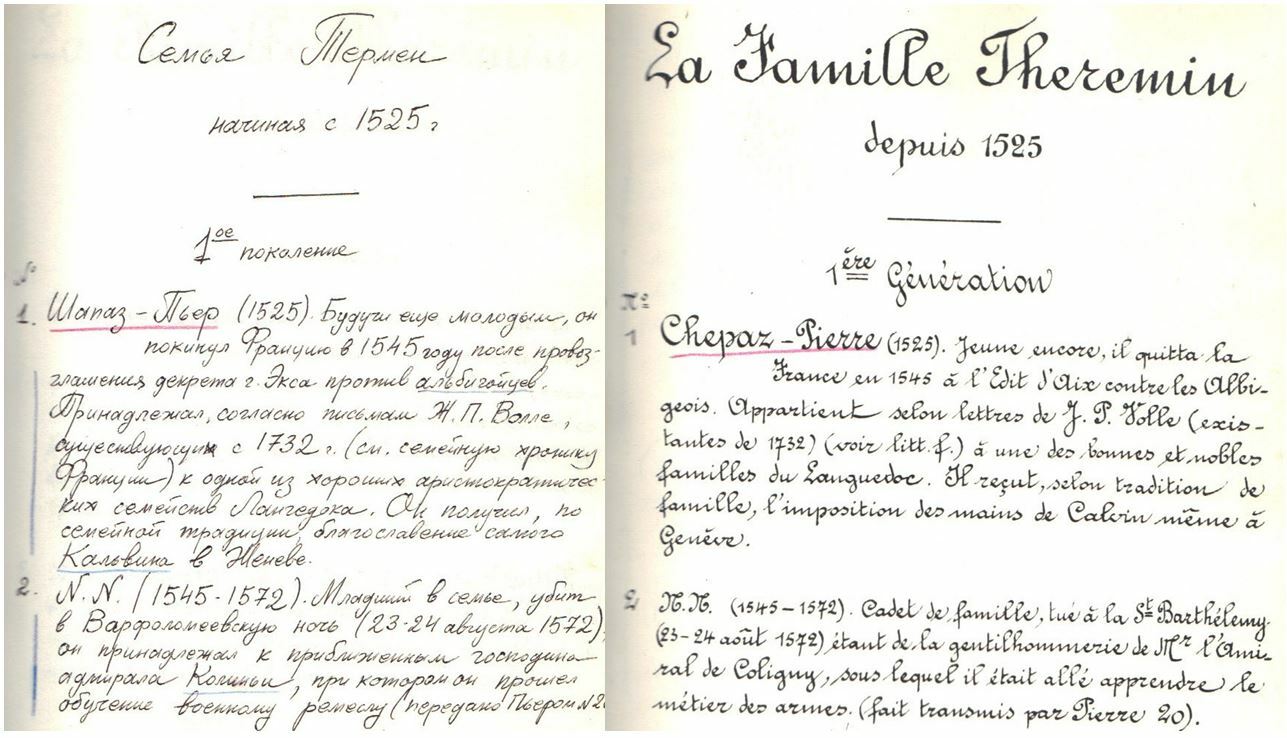 Семья Термен
начиная с 1525 г
1ое поколение
№
1. Шапаз-Пьер (1525). Будучи еще молодым, он
покинул Францию в 1545 году после провоз-
глашения декрета г. Экса против альбигойцев.
Принадлежал, согласно письмам Ж. П. Волле,
существующим с 1732 г. (см. семейную хронику
Франции) к одной из хороших аристократичес-
ких семейств Лангедока. Он получил, по
семейной традиции, благославение самого
Кальвина в Женеве.
2. N. N. (1545-1572). Младший в семье, убит
в Варфоломеевскую ночь (23-24 августа 1572),
он принадлежал к приближенным господина
адмирала Колиньи, при котором он прошел
обучение военному ремеслу (передано Пьером N 20
La Famille Theremin
depuis 1525
1ère Génération
No
1 Chepaz-Pierre (1525). Jeune encore, il quitta la
France en 1545 à l'Edit d'Aix contre les Albi-
geois. Appartient selon lettres de J. P. Volle (exis-
tantes de 1732) (voir litt. f.) à une des bonnes et nobles
familles du Languedoc. Il reçut, selon tradition de
famille, l'imposition des mains de Calvin même à
Genève.
2 N.N. (1545-1572). Cadet de famille, tué à la St Barthélemy
(23-24 août 1572) étant de la gentilhommerie de Mr l'Ami-
ral de Coligny, sous lequel il était allé apprendre le
métier des armes. (fait transmis par Pierre 20).